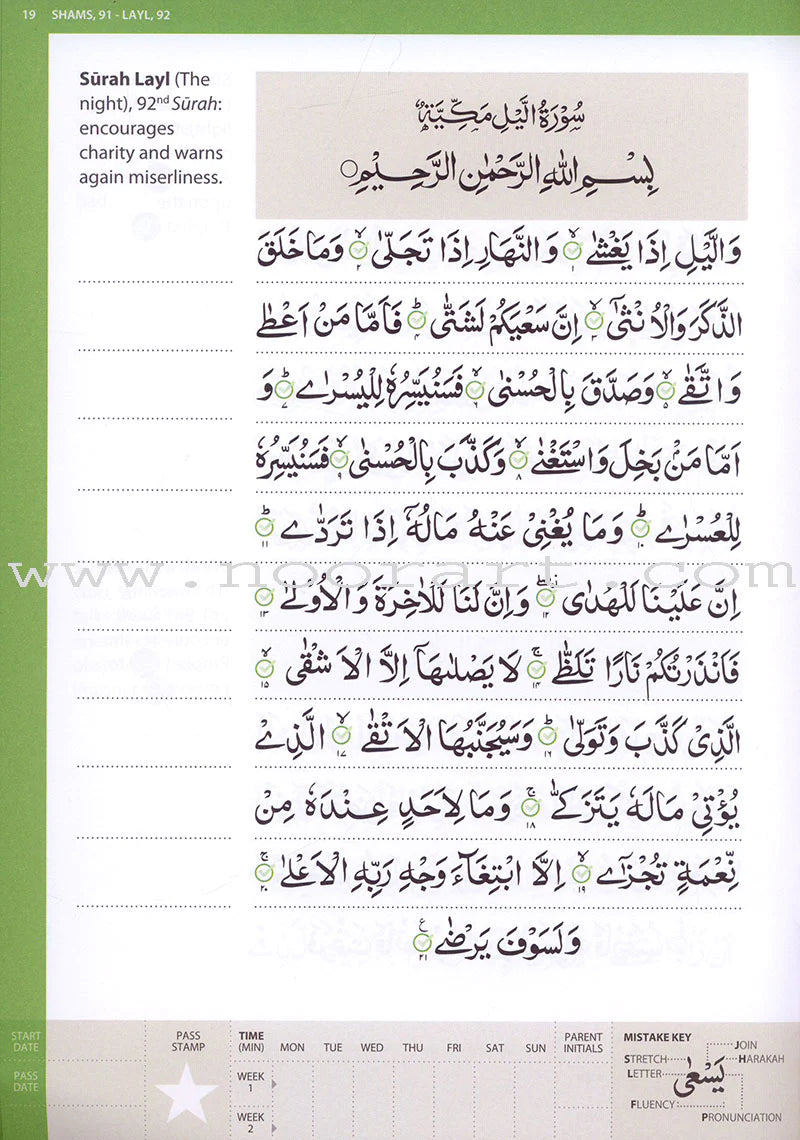 19 SHAMS, 91 - LAYL, 92
Sūrah Layl (The
night), 92nd Sūrah:
encourages
charity and warns
again miserliness.
سُوْرَةُ الَّيْلِ مَكِّيَّةٌ
بِسْمِ اللهِ الرَّحْمٰنِ الرَّحِيْمِ
وَالَّيْلِ اِذَا يَغْشٰى ۙ١ وَالنَّهَارِ اِذَا تَجَلّٰى ۙ٢ وَمَا خَلَقَ
الذَّكَرَ وَالْاُنْثٰىٓ ۙ٣ اِنَّ سَعْيَكُمْ لَشَتّٰى ؕ٤ فَاَمَّا مَنْ اَعْطٰى
وَاتَّقٰى ۙ٥ وَصَدَّقَ بِالْحُسْنٰى ۙ٦ فَسَنُيَسِّرُهٗ لِلْيُسْرٰى ؕ٧ وَ
اَمَّا مَنْۢ بَخِلَ وَاسْتَغْنٰى ۙ٨ وَكَذَّبَ بِالْحُسْنٰى ۙ٩ فَسَنُيَسِّرُهٗ
لِلْعُسْرٰى ؕ١٠ وَمَا يُغْنِىْ عَنْهُ مَالُهٗۤ اِذَا تَرَدّٰى ؕ١١
اِنَّ عَلَيْنَا لَلْهُدٰى ۖ١٢ وَاِنَّ لَنَا لَلْاٰخِرَةَ وَالْاُوْلٰى ١٣
فَاَنْذَرْتُكُمْ نَارًا تَلَظّٰى ۚ١٤ لَا يَصْلٰىهَاۤ اِلَّا الْاَشْقَى ۙ١٥
الَّذِىْ كَذَّبَ وَتَوَلّٰى ؕ١٦ وَسَيُجَنَّبُهَا الْاَتْقَى ۙ١٧ الَّذِىْ
يُؤْتِىْ مَالَهٗ يَتَزَكّٰى ۚ١٨ وَمَا لِاَحَدٍ عِنْدَهٗ مِنْ
نِّعْمَةٍ تُجْزٰٓى ۙ١٩ اِلَّا ابْتِغَآءَ وَجْهِ رَبِّهِ الْاَعْلٰى ۚ٢٠
وَلَسَوْفَ يَرْضٰى ٢١ع
www.noorart.com
START DATE
PASS DATE
PASS STAMP
TIME (MIN) MON TUE WED THU FRI SAT SUN PARENT INITIALS
WEEK 1
WEEK 2
MISTAKE KEY
JOIN
STRETCH
HARAKAH
LETTER
يَسْعٰى
FLUENCY
PRONUNCIATION